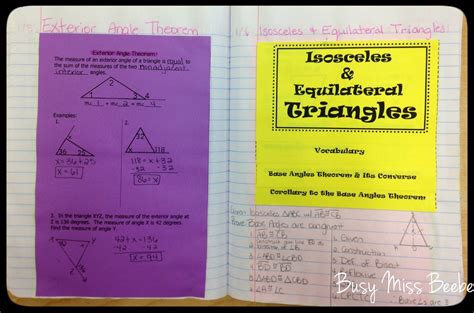 1/5 Exterior Angle Theorem
Exterior Angle Theorem
The measure of an exterior angle of a triangle is equal to
the sum of the measures of the two nonadjacent
interior angles.
2
1 3 4
m∠1 + m∠2 = m∠4
Examples:
1.
2.
36 25
32
118
x = 36 + 25
x = 61
118 = x + 32
-32 -32
86 = x
3. In the triangle XYZ, the measure of the exterior angle at
Z is 136 degrees. The measure of angle X is 42 degrees.
Find the measure of angle Y.
42 + x = 136
-42 -42
x = 94
1/6 Isosceles & Equilateral Triangles
Isosceles
&
Equilateral
Triangles
Vocabulary
Base Angles Theorem & Its Converse
Corollary to the Base Angles Theorem
Given: Isosceles ΔABC w/ AB≅CB
Prove: Base Angles are congruent
1. AB≅CB
1. Given
2. Construction
3. ∠ABD≅∠CBD
3. Def. of Bisect
4. BD≅BD
4. Reflexive
6. CPCTC
Busy Miss Beebe